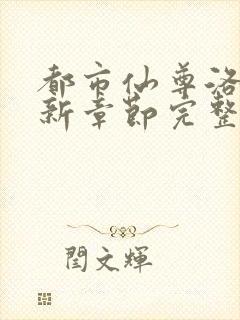 都市仙尊洛
新章節完整
閏文輝